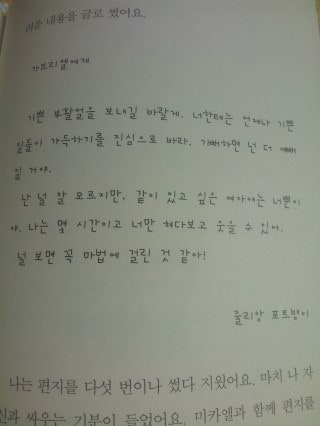 러운 내용을 글로 썼어요.
가브리엘에게
기쁜 부활절을 보내길 바랄게. 너한테는 언제나 기쁜
일들이 가득하기를 진심으로 바라. 기뻐하면 넌 더 예뻐
질 거야.
난 널 잘 모르지만, 같이 있고 싶은 여자애는 너뿐이
야. 나는 몇 시간이고 너만 쳐다보고 웃을 수 있어.
널 보면 꼭 마법에 걸린 것 같아!
줄리앙 포트벵이
나는 편지를 다섯 번이나 썼다 지웠어요. 마치 나 자
신과 싸우는 기분이 들었어요. 미카엘과 함께 편지를